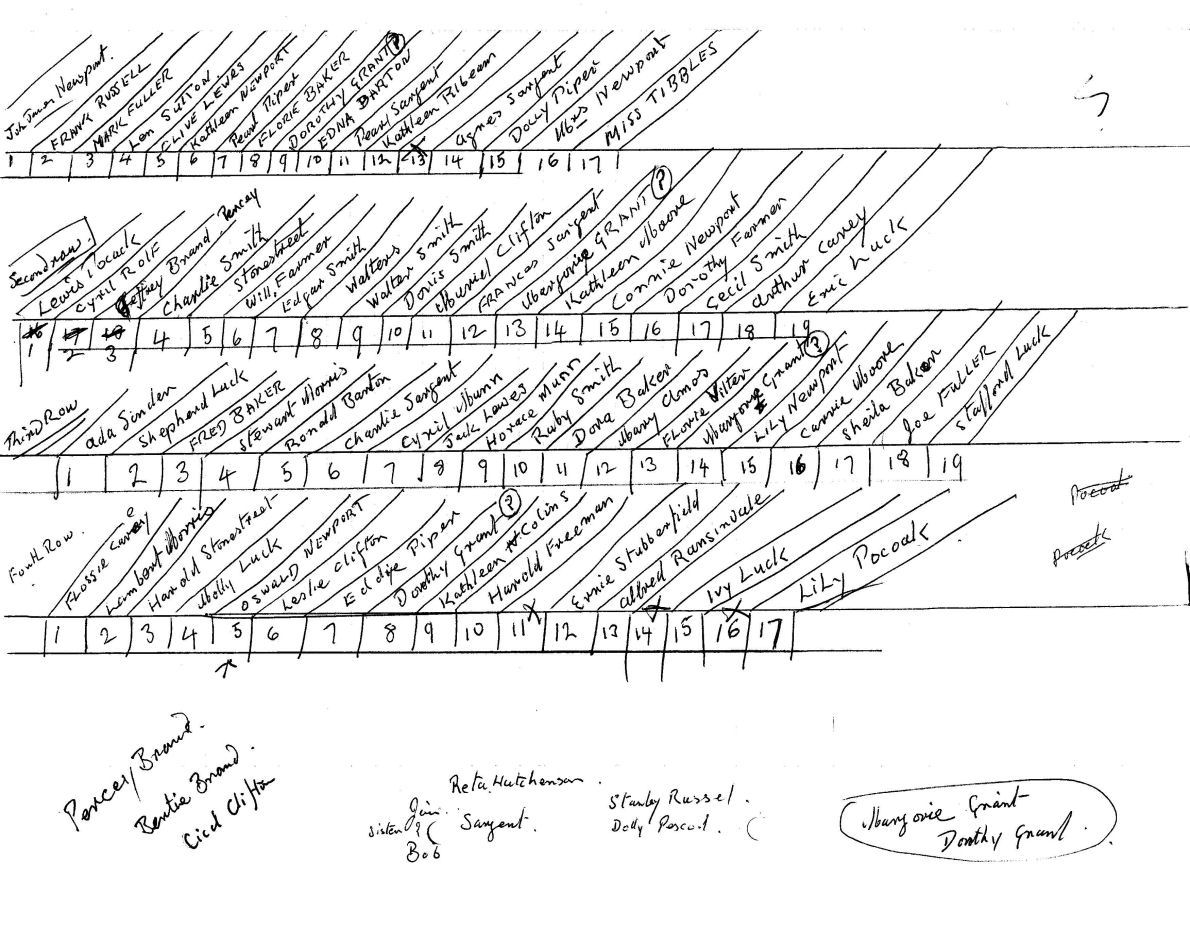 Newport.
FRANK RUSSELL
MARK FULLER
Len SUTTON
CLIVE LEWRS
Kathleen NEWPORT
Pearl Piper
FLORIE BAKER
DOROTHY GRANT ?
EDNA BARTON
Pearl Sargent
Kathleen Ribeam
Agnes Sargent
DOLLY PIPER
Mrs Newport
MISS TIBBLES
1 2 3 4 5 6 7 8 9 10 11 12 13 14 15 16 17
Second row.
Lewis
CYRIL ROLF
Jeffrey Brand Percey
Charlie Smith
Stonestreet
Will. Farmer
Edgar Smith
Walters
Walter Smith
Doris Smith
Muriel Clifton
FRANCES Sargent
Marjorie GRANT ?
Kathleen Moore
Connie Newport
Dorothy Farmer
Cecil Smith
Arthur Carvey
Eric Luck
16 17 18
1 2 3 4 5 6 7 8 9 10 11 12 13 14 15 16 17 18 19
Third Row
Ada Sinden
Shepherd Luck
FRED BAKER
Stewart Morris
Ronald Barton
Charlie Sargent
Cyril Munn
Jack Lewes
Horace Munn
Ruby Smith
Dora Baker
Mary Amos
FLORRIE Vilter
Marjorie Grant ?
LILY NEWPORT
Carrie Moore
Sheila Baker
Joe FULLER
Stafford Luck
1 2 3 4 5 6 7 8 9 10 11 12 13 14 15 16 17 18 19
Fouth Row.
FLOSSIE
Lambert Morris
Harold Stonestreet
Molly Luck
OSWALD NEWPORT
Leslie Clifton
Eddie Piper
Dorothy Grant ?
Kathleen Colins
Harold Freeman
Ernie Stubberfield
Alfred Ransinvale
Ivy Luck
LILY Pocock
1 2 3 4 5 6 7 8 9 10 11 12 13 14 15 16 17
Percey Brand.
Bertie Brand.
Cicil Clifton
Reta Hutchenson.
Sisters ? ( Sargent.
Bob
Stanley Russel.
Dolly Pescod. (
Marjorie Grant
Dorothy Grant.